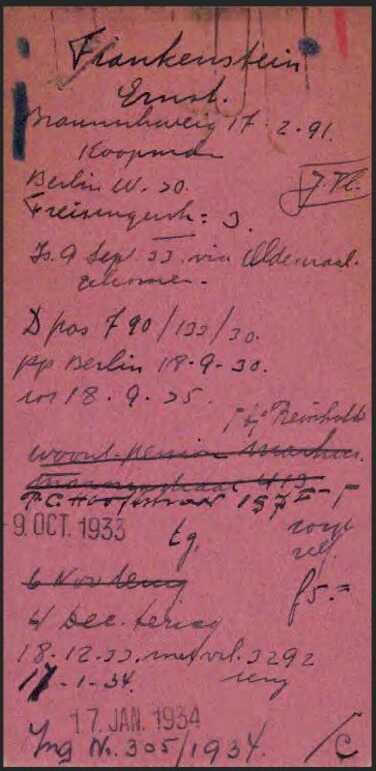 Frankenstein
Ernst.
Braunschweig 17-2-91.
Koopman
Berlin W. 30.
J. Vl.
Freisingerstr: 3.
Is 9 Sept. 33 via Oldenzaal
gekomen.
D pas 790/133/30.
pp Berlin 18-9-30.
tot 18-9-35.
Reinholds
woont pension
413
P.C. Hooftstraat 157
9. OCT. 1933
tg.
f5.=
6 Nov terug
4 Dec. terug
18-12-33. met vrl. 3292
17-1-34. terug
17. JAN. 1934
Ing No. 305/1934.
/C